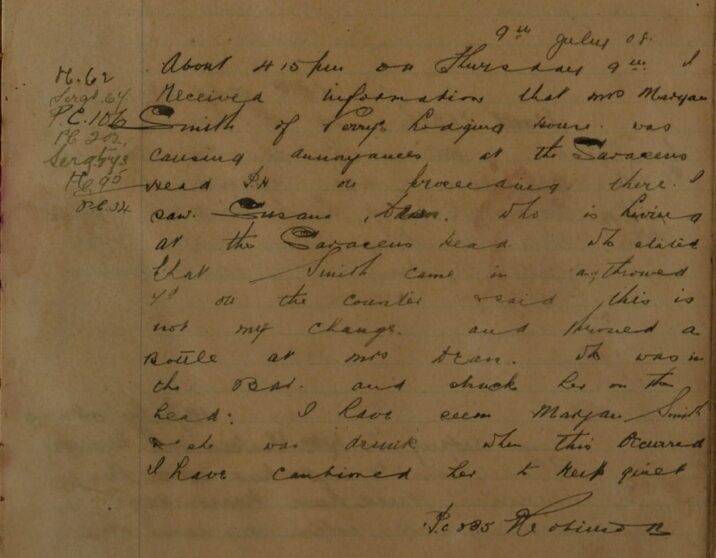 9th July 08.
About 4 15pm on Thursday 9th I
H. 62
Sergt. 64
P.C. 106
P.C. 202,
Sergt 543
H.C. 95
P.C. 34
received information that mrs Maryan
Smith of Perrys Lodging House. was
causing annoyances at the Saracens
Head P.H on proceeding there. I
saw. Susana Dean. who is living
at the Saracens Head who stated
that Smith came in & throwed
on the counter & said this is
not my change. and throwed a
Bottle at mrs Dean. who was in
the Bar. and struck her on the
head: I have seem Maryan Smith
& she was drunk when this occurred
I have cautioned her to keep quiet
P.c 285 Robinson